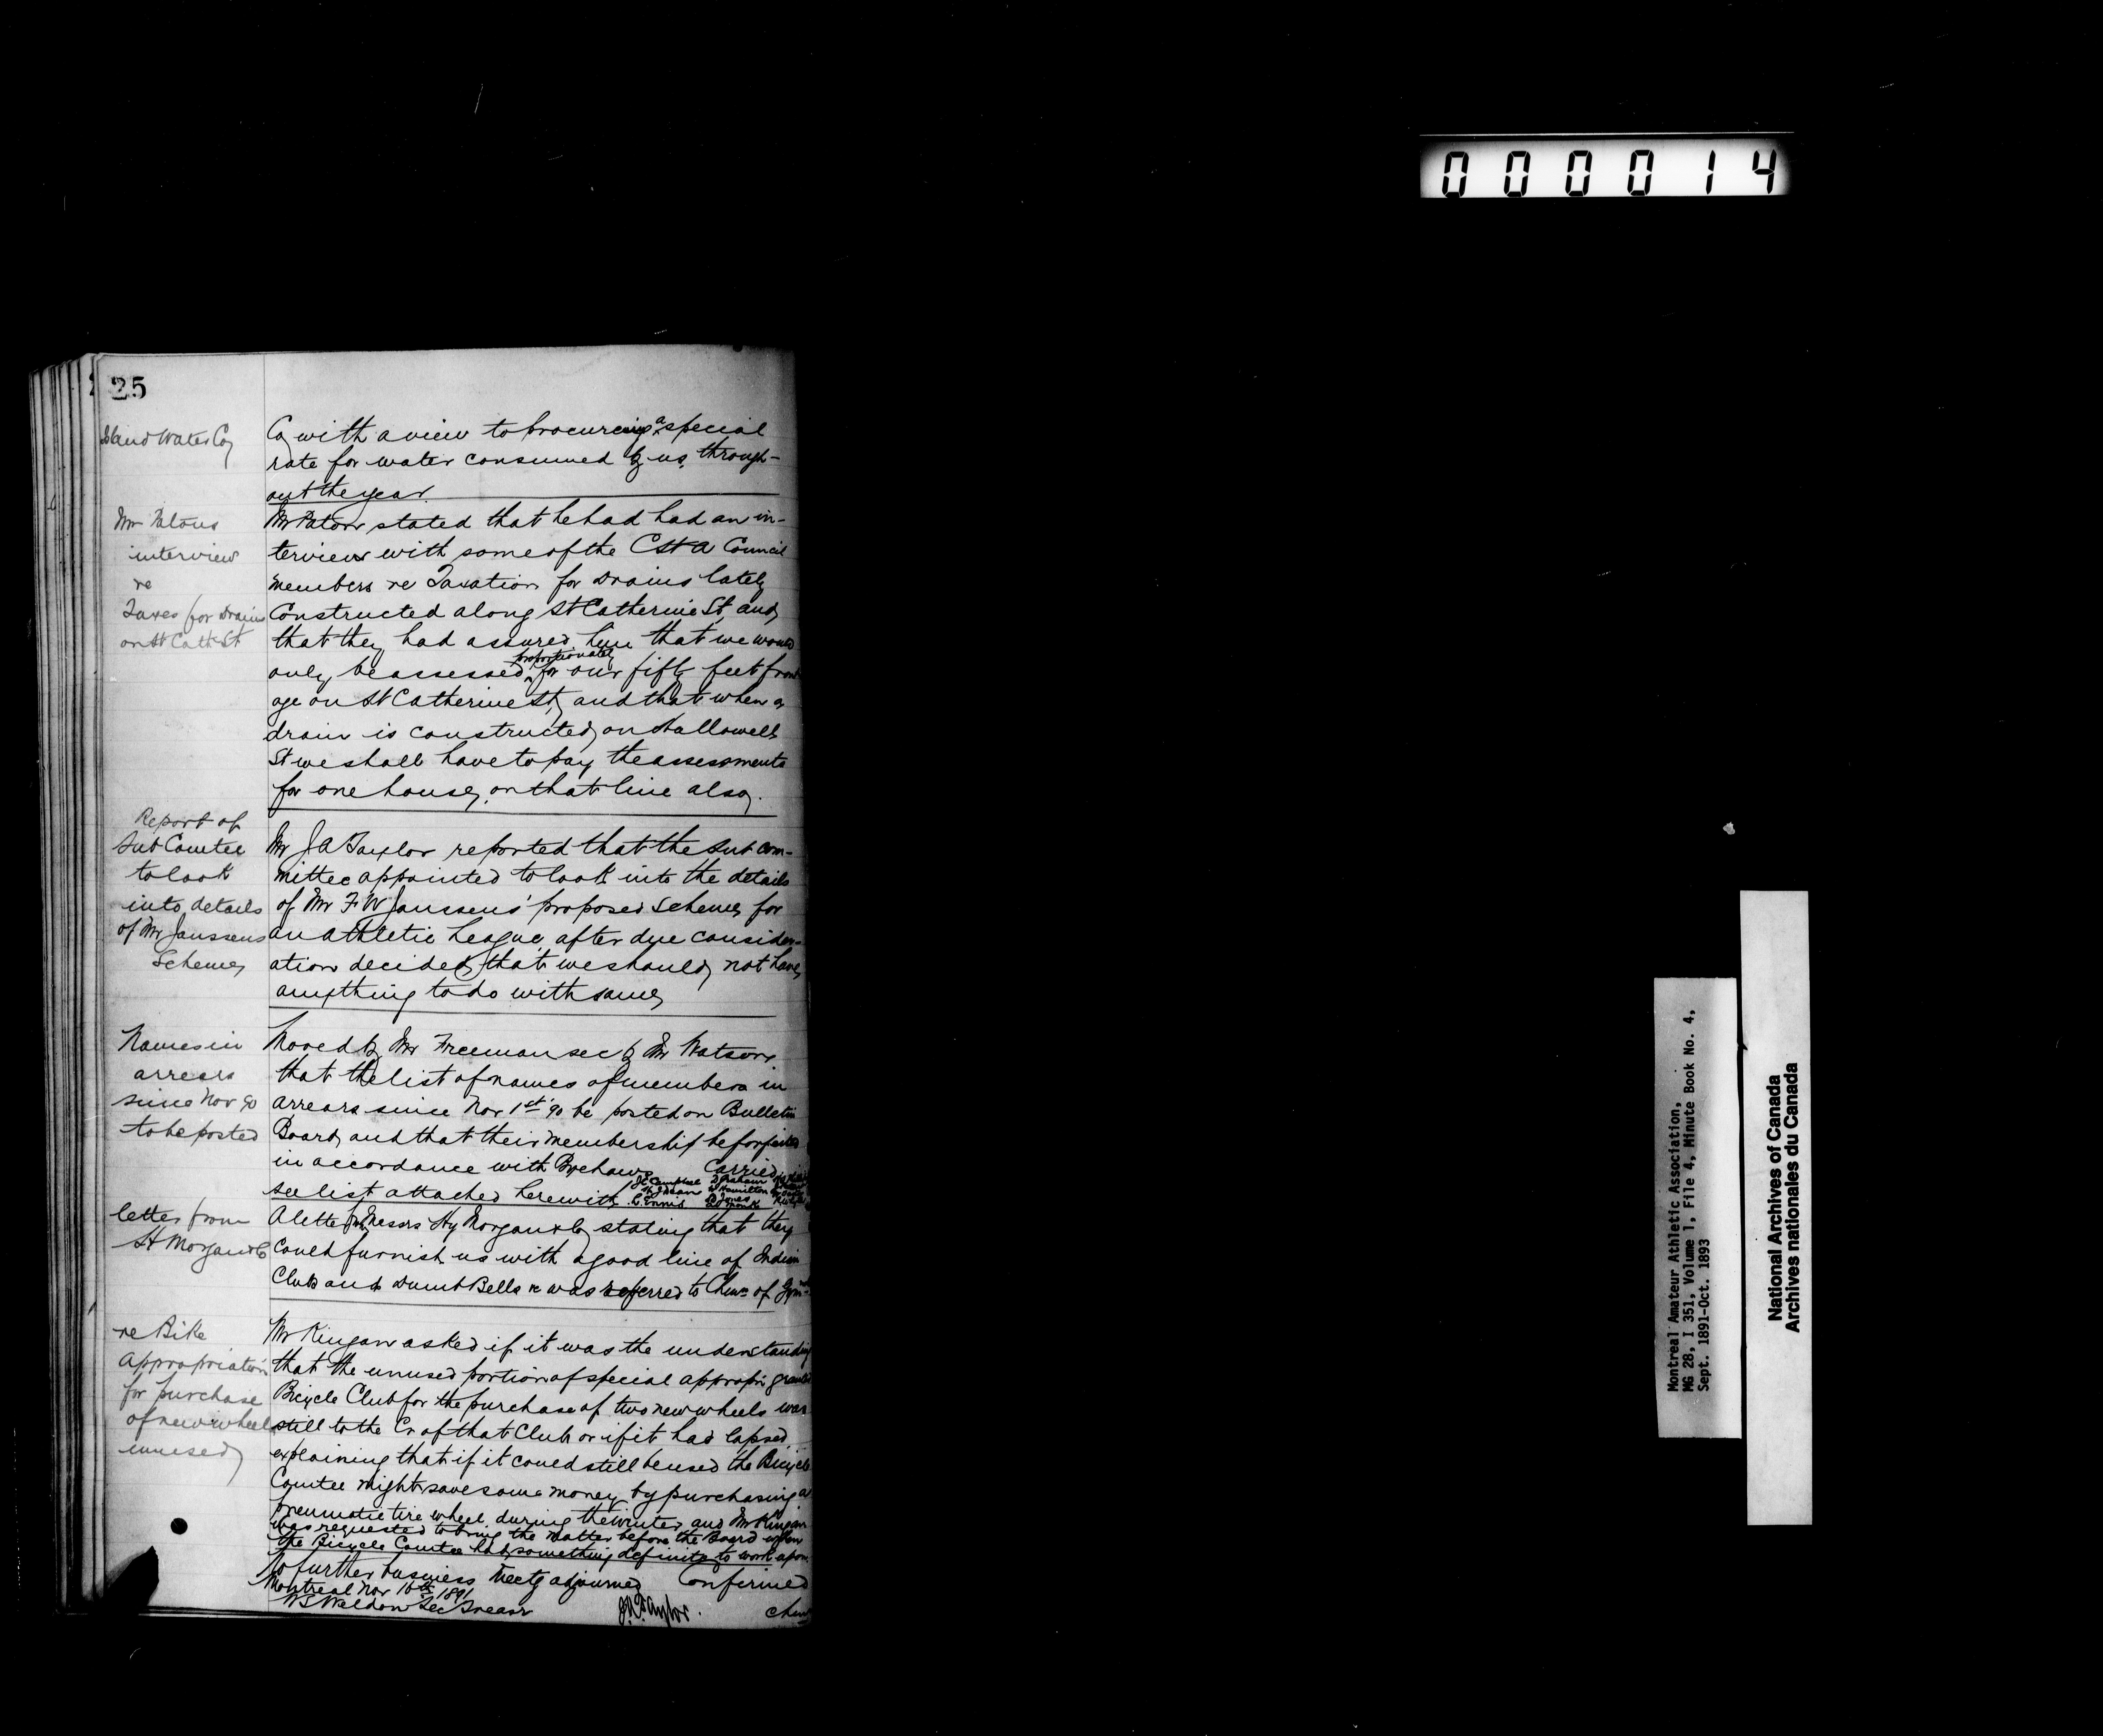 000014
25
Island Water Co
Co with a view to procureing a special
rate for water consumed by us, through-
out the year.
Mr Patons
interview
re
Taxes for Drains
on St Cath St
Mr Paton stated that he had had an in-
terview with some of the Council
members re Taxation for Drains lately
Constructed along St Catherine St, and
that they had assured him that we would
only be assessed proportionately for our fifty feet front
age on St Catherine St, and that when a
drain is constructed on Hallowell
St we shall have to pay the assessments
for one house, on that line also.
Report of
Sub Comtee
to look
into details
of Mr Janssens
Scheme
Mr J A Taylor reported that the Sub com-
mittee appointed to look into the details
of Mr F W Janssens' proposed Scheme for
an Athletic League, after due consider-
ation decided that we should not have
anything to do with same
Names in
arrears
since Nov 90
to be posted
Moved by Mr Freeman sec by Mr Watson
that the list of names of members in
arrears since Nov 1st '90 be posted on Bulletin
Board, and that their membership be forfeited
in accordance with Bye laws Carried
see list attached herewith
J C Campbell D Graham
Hamilton
C Ennis Jones
Monk
letter from
H Morgan & Co
A letter fm Messrs Hy Morgan & Co stating that they
could furnish us with a good line of Indian
Clubs and Dumb Bells was referred to Chmn of Gym
re Bike
Appropriation
for purchase
of new wheels
unused
Mr Kingan asked if it was the understanding
that the unused portion of special appropn granted
Bicycle Club for the purchase of two new wheels was
still to the Cr of that Club or if it had lapsed,
explaining that if it could still be used the Bicycle
Comtee might save some money by purchasing a
pneumatic tire wheel during the winter and Mr Kingan
was requested to bring the matter before the Board when
the Bicycle Comtee had something definite to work upon.
No further business Meetg adjourned Confirmed
Montreal Nov 16th 1891
W S Weldon Sec Treasr J A Taylor. Chmn
Montreal Amateur Athletic Association,
MG 28, I 351, Volume 1, File 4, Minute Book No. 4,
Sept. 1891-Oct. 1893
National Archives of Canada
Archives nationales du Canada